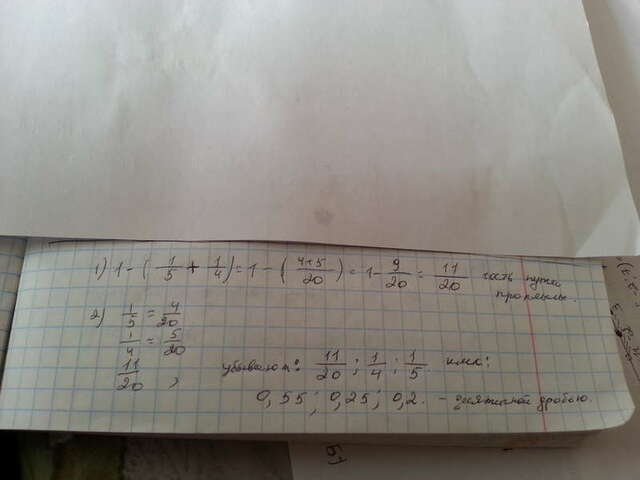 1) 1 - ( 1/5 + 1/4 ) = 1 - ( 4+5/20 ) = 1 - 9/20 = 11/20 часть пути
проплыли.
2) 1/5 = 4/20
1/4 = 5/20
11/20 , убывают: 11/20 ; 1/4 ; 1/5 или:
0,55; 0,25; 0,2. - десятичной дробью.
Б)